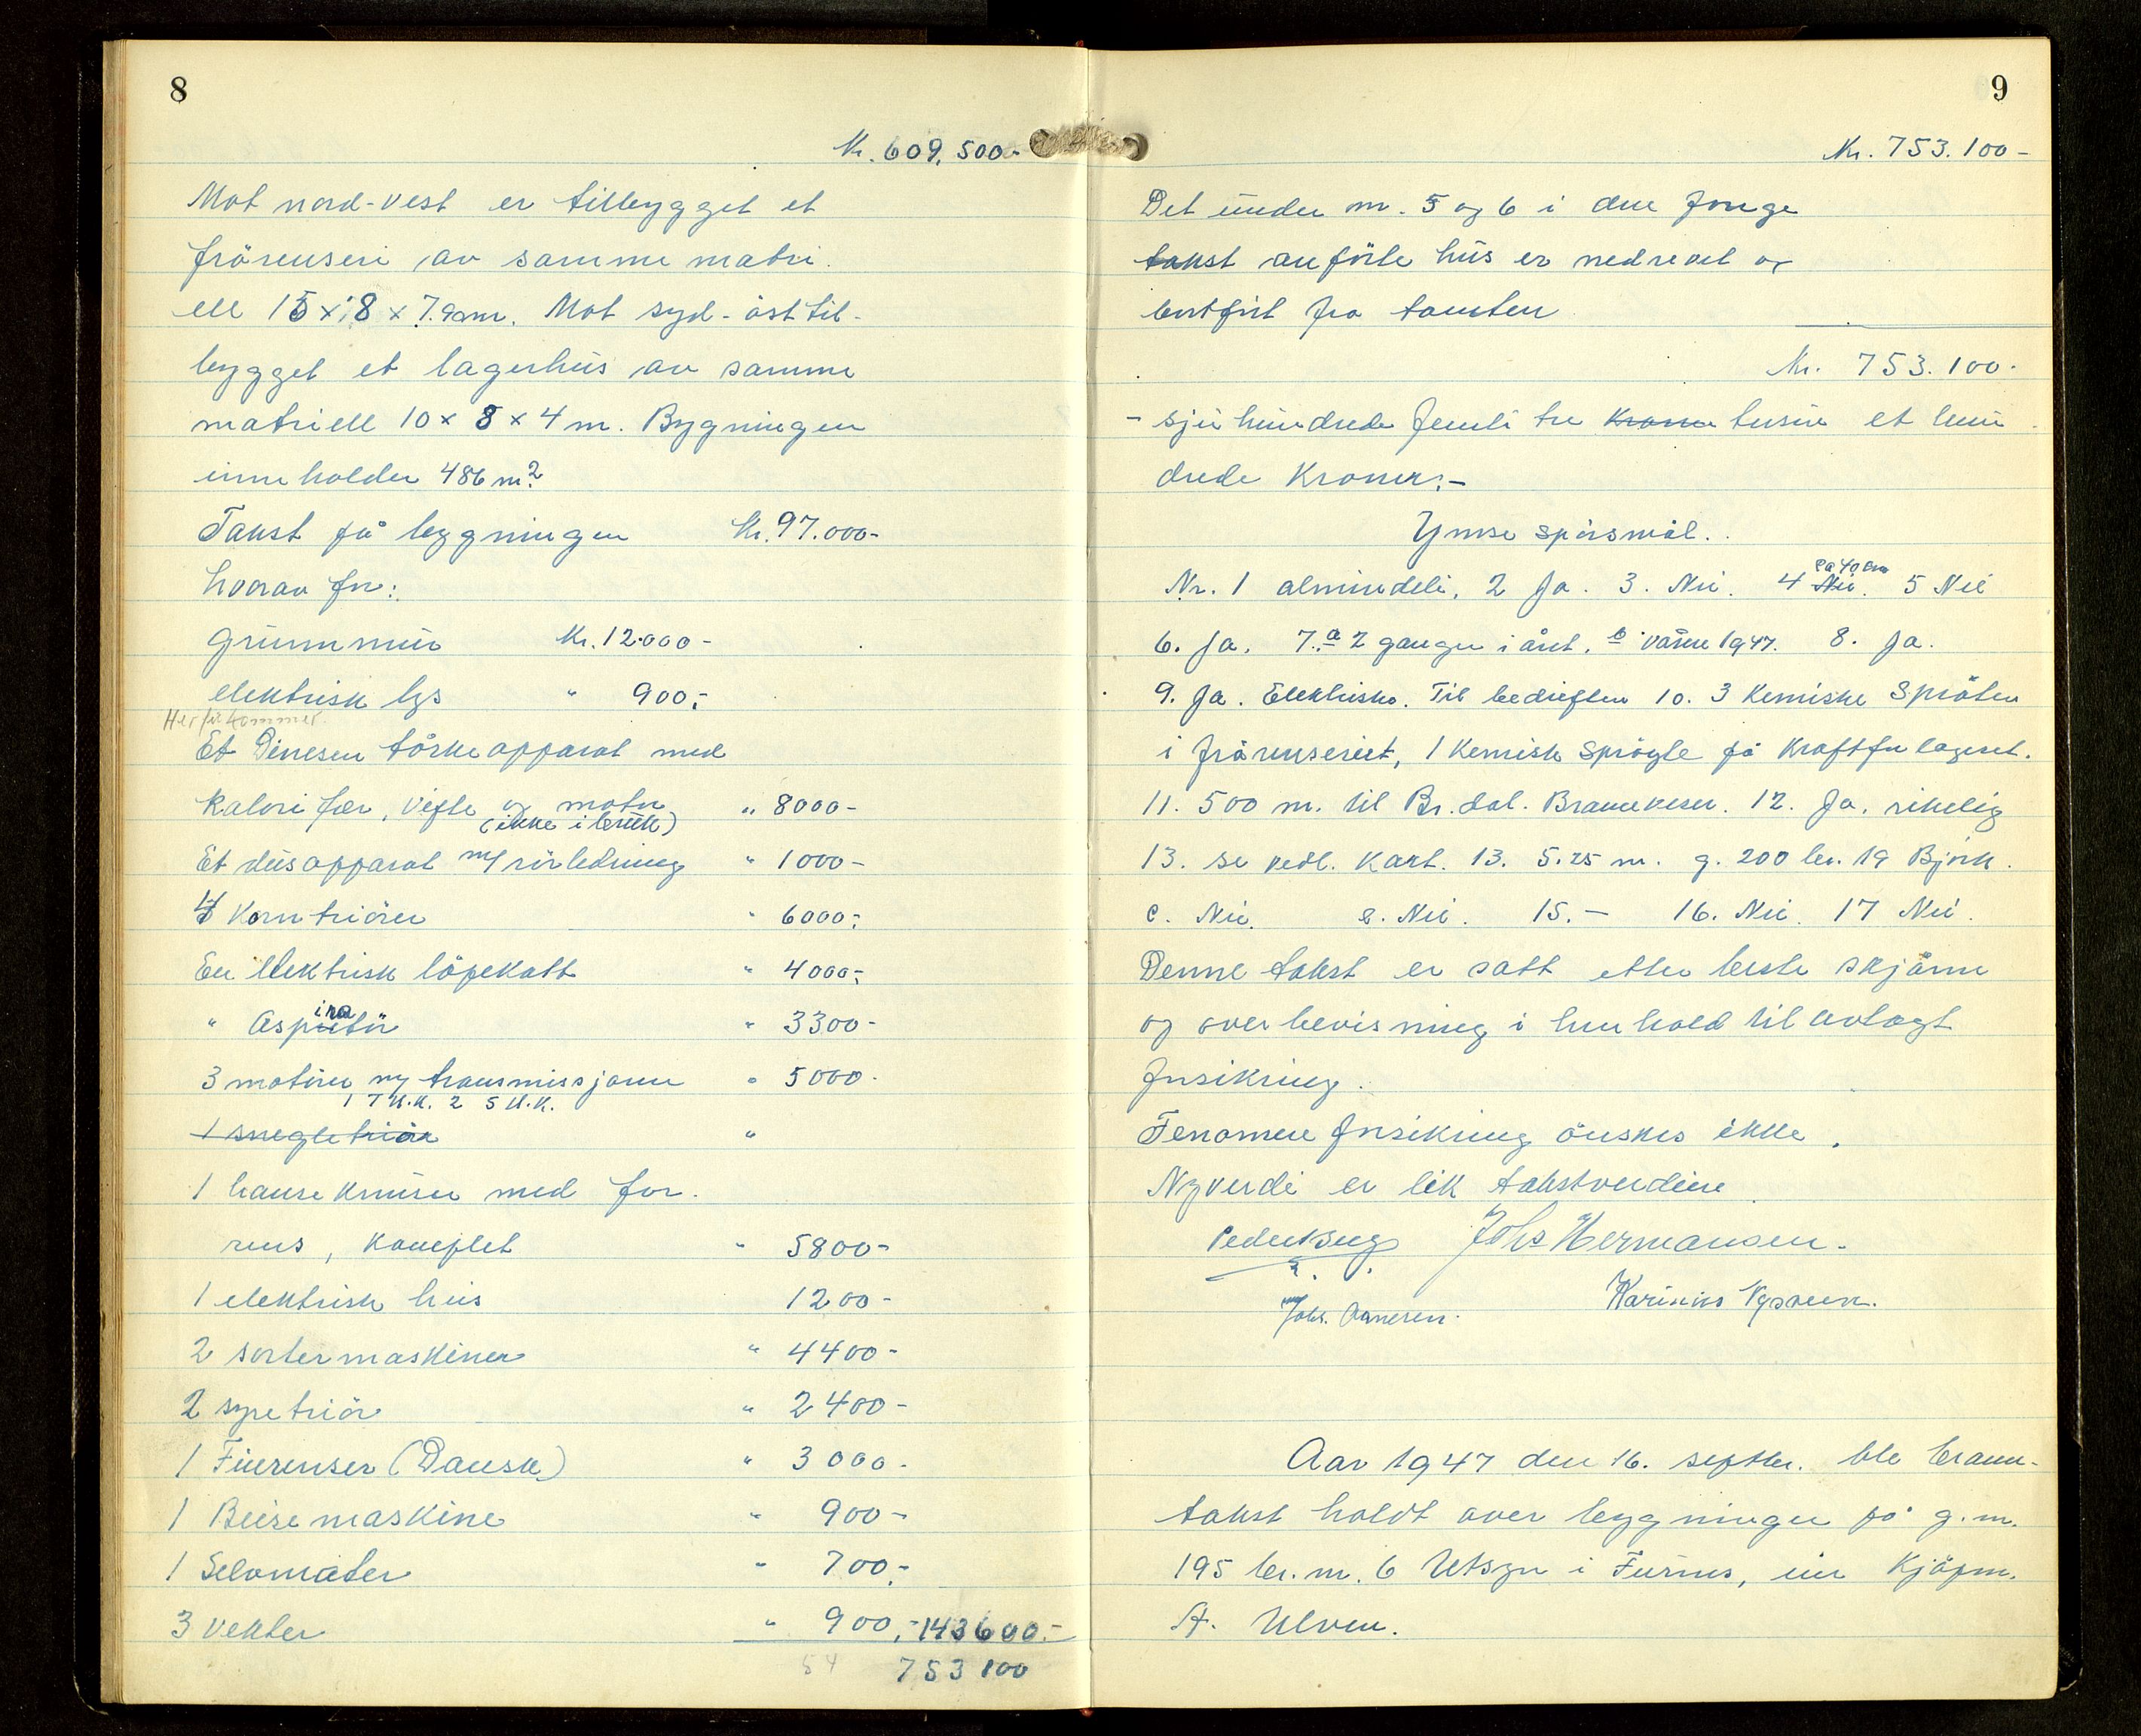 8
Kr. 609.500-
Mot nord-vest er tilbygget et
frörenseri av samme matri-
ell 15 x 8 x 7.90m. Mot syd-öst til-
bygget et lagerhus av samme
matriell 10 x 8 x 4 m. Bygningen
inneholder 486 m2.
Takst på byggningen Kr. 97.000-
hvorav for:
Grunnmur Kr. 12.000-
elektrisk lys " 900,-
Herfor kommer.
Et Dinesen törkeapparat med
Kalorifer, vifte og motor " 8000-
(ikke i bruk)
Et dusapparat m/ rörledning " 1000-
4 Korntriörer " 6000,-
En Elektrisk löpekatt " 4000,-
" Aspiratör " 3300-
3 motorer m/ transmissjoner " 5000-
1 7 H.K. 2 5 H.K.
1 snegletriör "
1 hansekruser med for-
rens, Komplet " 5800-
1 elektrisk heis 1200-
2 sortermaskiner " 4400-
2 syretriör " 2400-
1 Finrenser (Dansk) " 3000-
1 Beisemaskine " 900-
1 Selvmater " 700,-
3 vekter " 900,- 143600.-
54 753 100
9
Kr. 753.100-
Det under nr. 5 og 6 i den forrige
takst anförte hus er nedrevet og
bortfört fra tomten
Kr. 753.100-
- sju hundrede femti tre Krone tusin et hun
drede Kroner.-
Ymse spörsmål.
Nr. 1 almindeli. 2 Ja. 3. Nei. 4 Nei. ca 40 cm 5 Nei
6. Ja. 7. a 2 ganger i året. b våren 1947. 8. Ja.
9. Ja. Elektriske. Til bedriften 10. 3 Kemiske Spröiter
i frörenseriet, 1 Kemisk Sprögte på Kraftforlageret.
11. 500 m. til Br.dal. Brannvesen. 12. Ja. rikelig
13. se vedl. Kart. 13. 5.25 m. g. 200 br. 19 Björk.
c. Nei. e. Nei. 15. - 16. Nei. 17 Nei.
Denne takst er satt etter beste skjönn
og overbevisning i henhold til avlagt
forsikring.
Fenomen forsikring önskes ikke.
Nyverdi er lik takstverdien
Peder Berg Johs Hermansen.
Johs. Arnesen. Karinius Nysveen.
Aar 1947 den 16. septbr. ble brann-
takst holdt over byggninger på g.nr.
195 br.nr. 6 Utsyn i Furnes, eier Kjöpm.
A. Ulven.